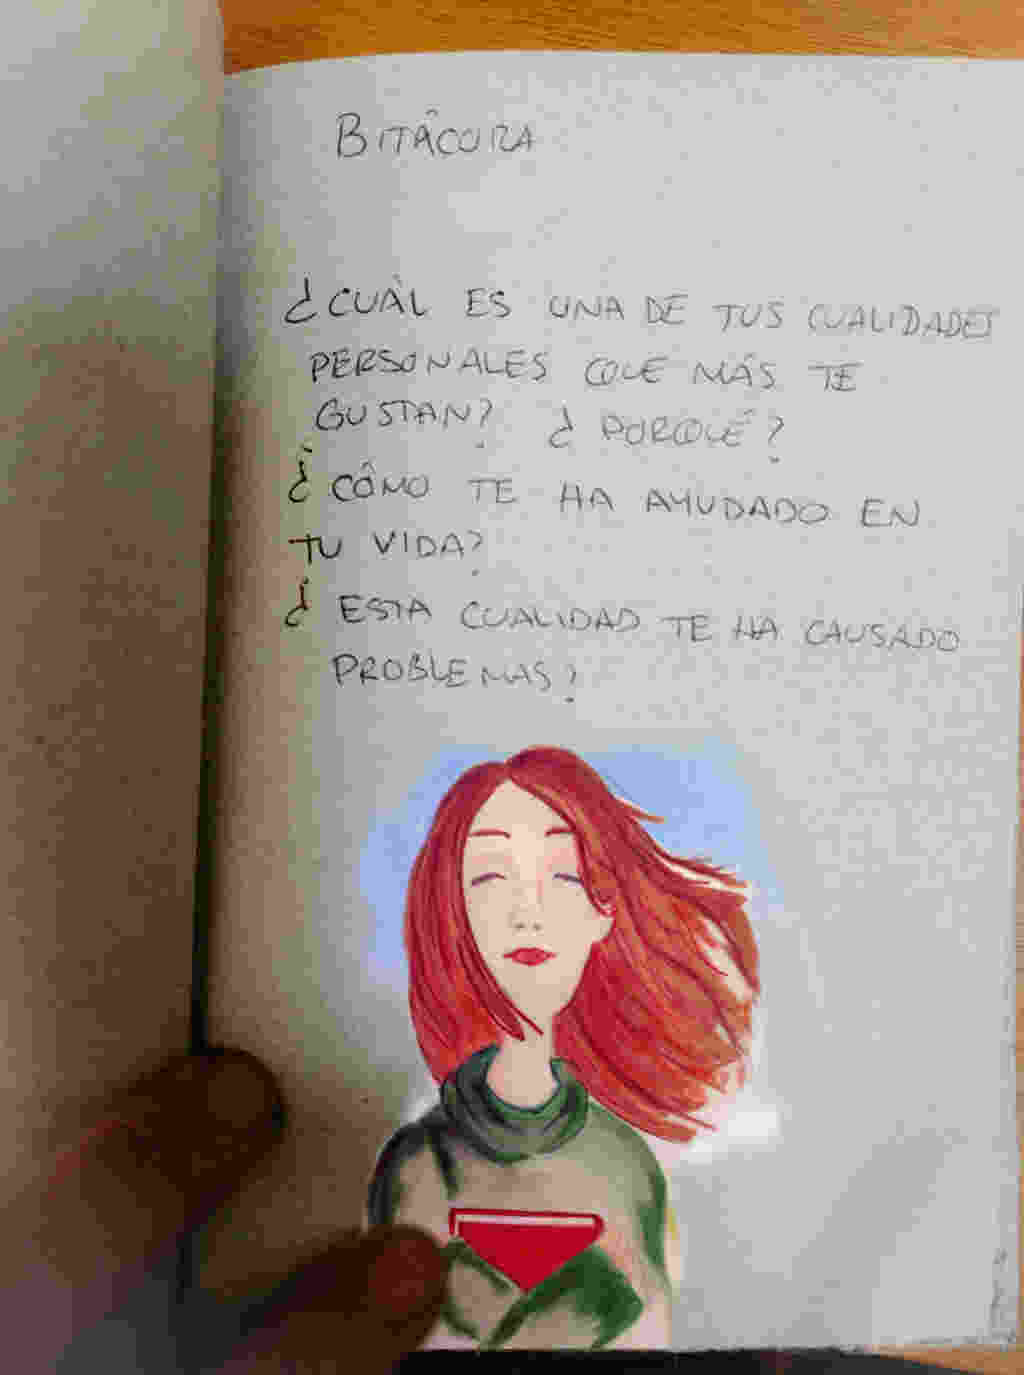 BITÁCORA
¿CUÁL ES UNA DE TUS CUALIDADES
PERSONALES QUE MÁS TE
GUSTAN? ¿PORQUÉ?
¿CÓMO TE HA AYUDADO EN
TU VIDA?
¿ESTA CUALIDAD TE HA CAUSADO
PROBLEMAS?